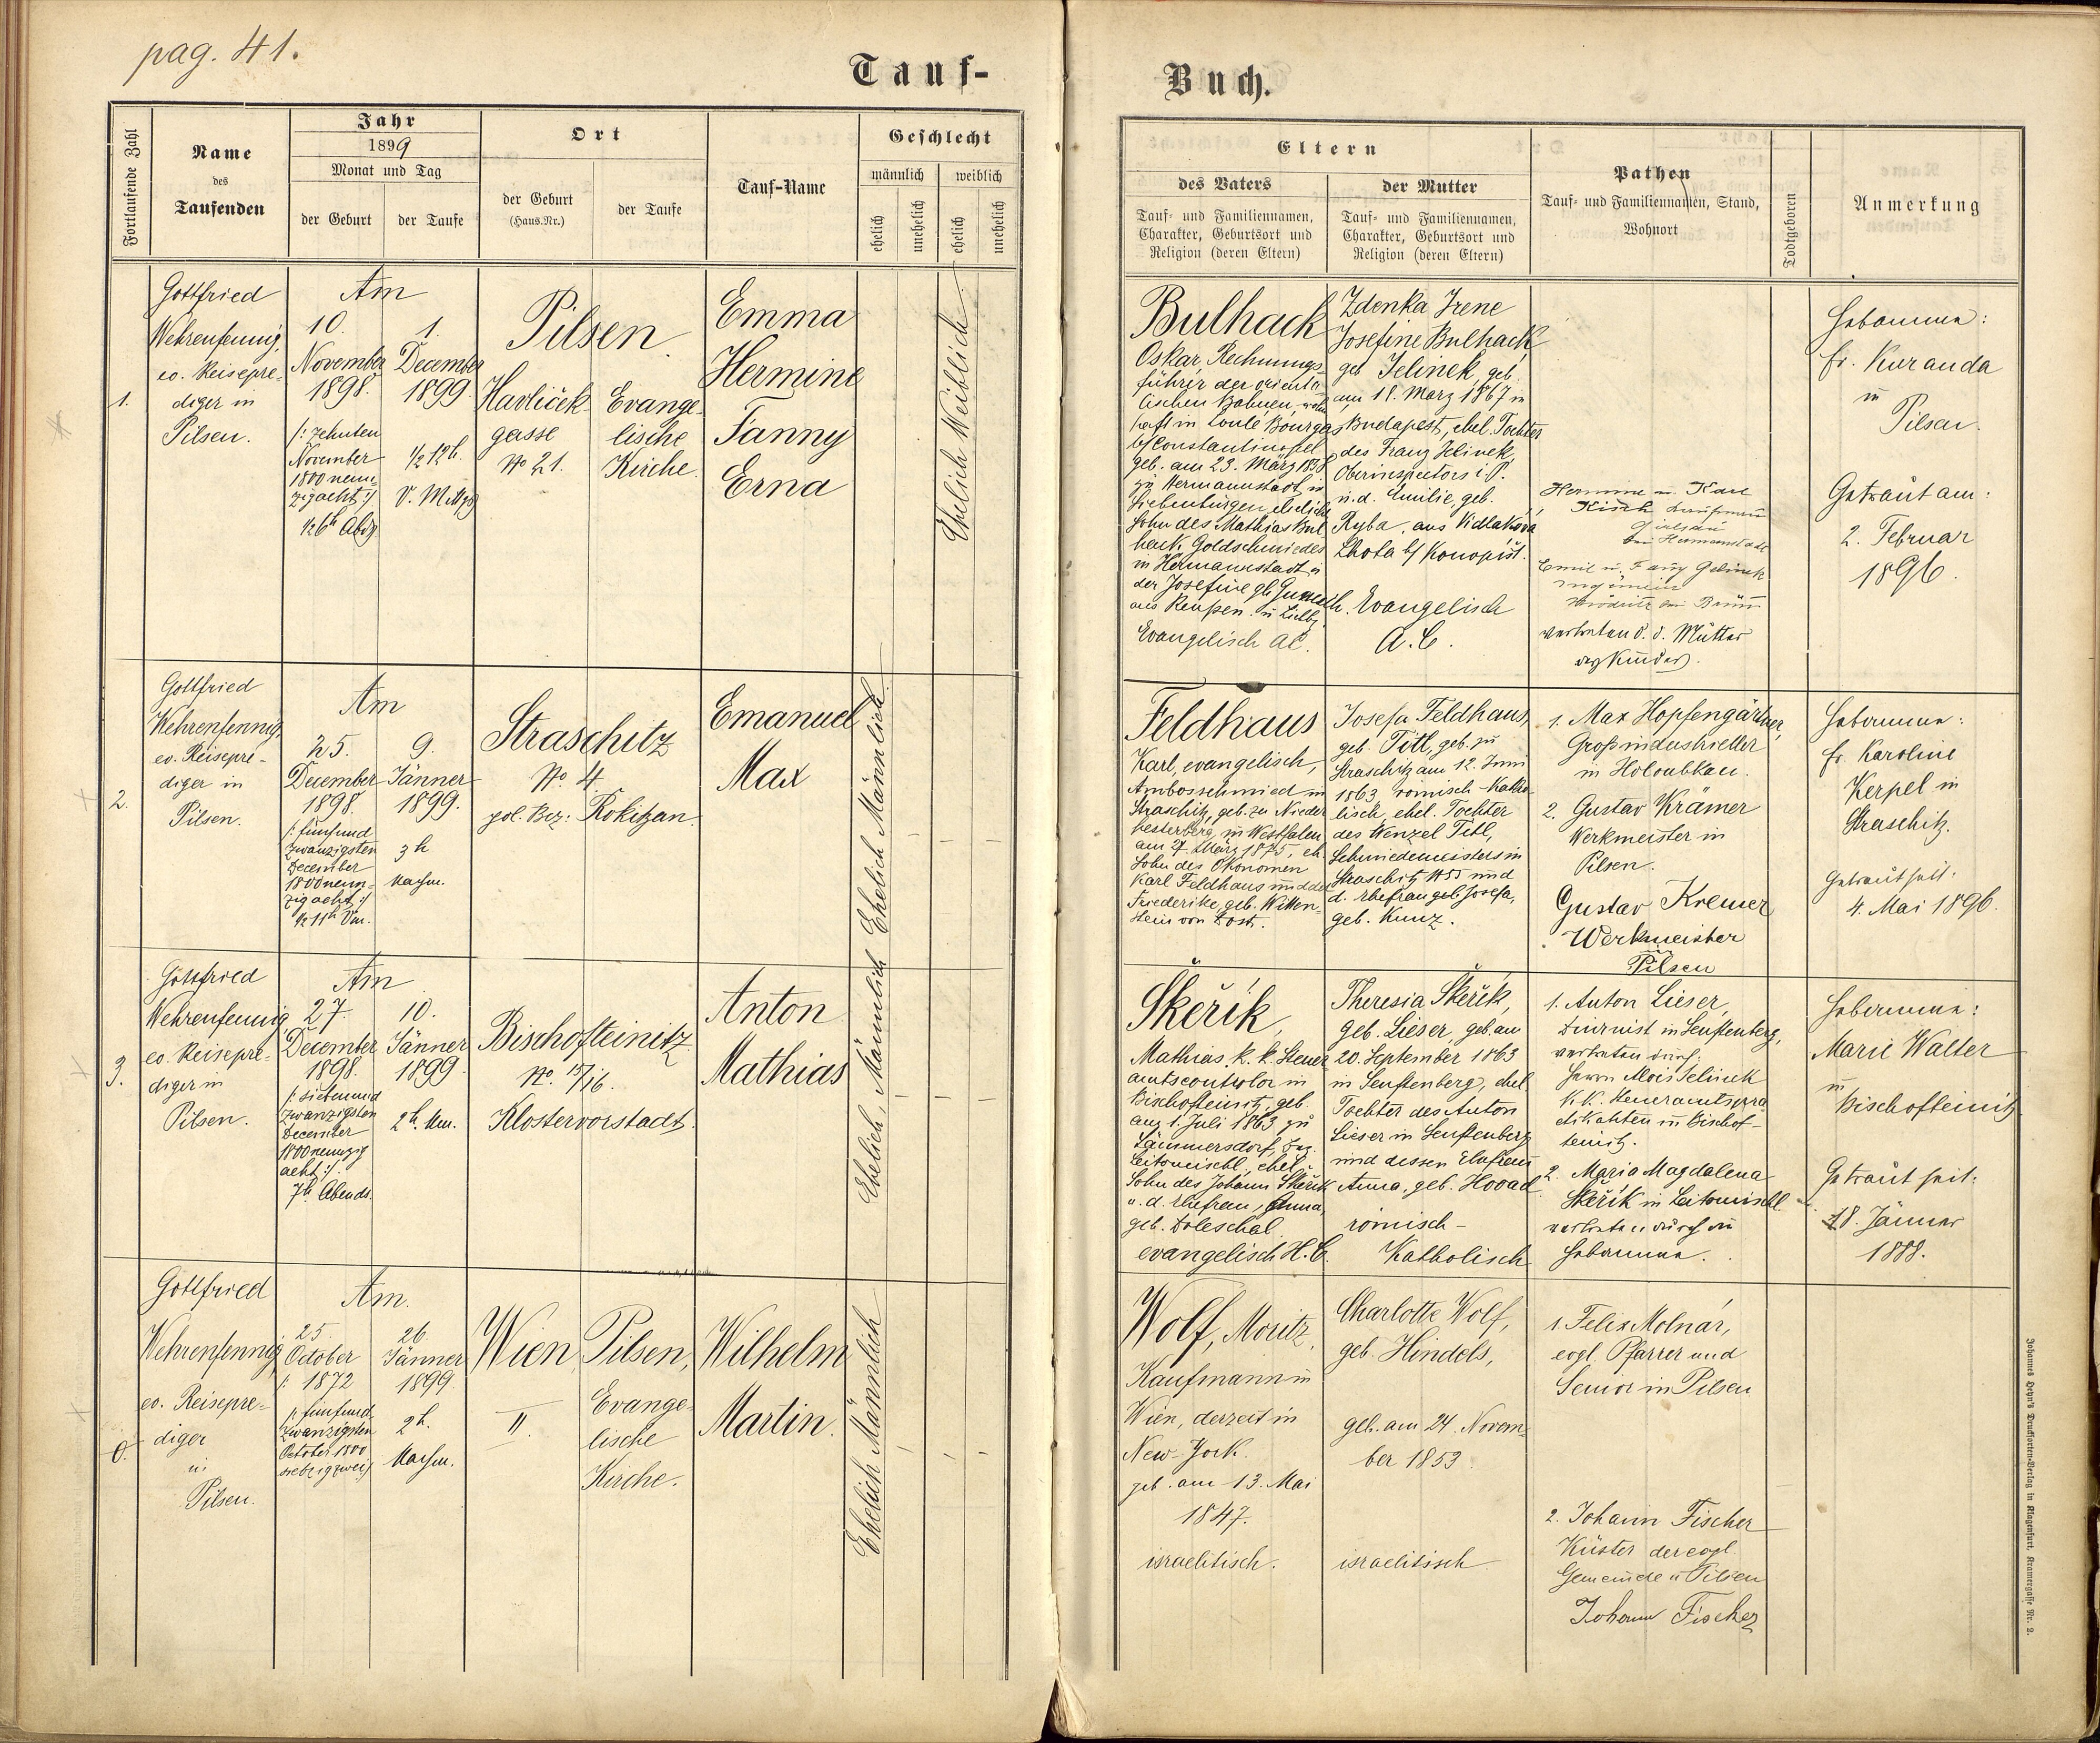 pag. 41.
Tauf-
Buch.
Fortlaufende Zahl
Name
des
Taufenden
Jahr
1899
Monat und Tag
der Geburt
der Taufe
Ort
der Geburt
(Haus-Nr.)
der Taufe
Tauf-Name
Geschlecht
männlich
weiblich
ehelich
unehelich
ehelich
unehelich
Eltern
des Vaters
Tauf- und Familiennamen,
Charakter, Geburtsort und
Religion (deren Eltern)
der Mutter
Tauf- und Familiennamen,
Charakter, Geburtsort und
Religion (deren Eltern)
Pathen
Tauf- und Familiennamen, Stand,
Wohnort
Todtgeboren
Anmerkung
1.
Gottfried
Wehrenfennig,
ev. Reisepre-
diger in
Pilsen.
Am
10.
November
1898.
/: zehnten
November
1800 neun-
zigacht :/
½ 6h Abds.
1.
December
1899
½ 12h.
V. Mittgs
Pilsen.
Havliček-
gasse
No 21.
Evange-
lische
Kirche
Emma
Hermine
Fanny
Erna
Ehelich Weiblich.
Bulhack
Oskar, Rechnungs-
führer der orienta-
lischen Bahnen, wohn
haft in Loulé Bourgas
b/ Constantinopel
geb. am 23. März 1858
zu Hermannstadt in
Siebenbürgen, eheliche
Sohn des Mathias Bul
hack, Goldschmiedes
in Hermannstadt u
der Josefine gb
aus Reußen
Evangelisch AC.
Zdenka Irene
Josefine Bulhack
geb Jelinek, geb.
am 18. März 1867 in
Budapest, ehel. Tochter
des Franz Jelinek,
Oberinspectors i. P.
u. d. Emilie, geb.
Ryba, aus Vidlaková
Lhota b/ Konopišt.
Evangelisch
A. C.
Hermine u. Karl
Kisch
bei Hermannstadt
Emil u. Fanny Jelinek
bei Brünn
vertreten d. d. Mutter
des Kindes.
Hebamme:
Fr. Kuranda
in
Pilsen.
Getraut am:
2. Februar
1896.
2.
Gottfried
Wehrenfennig,
ev. Reisepre-
diger in
Pilsen.
Am
25.
December
1898.
/: fünfund
zwanzigsten
December
1800neun-
zigacht :/
½ 11h Vm.
9.
Jänner
1899.
3 h
Nachm.
Straschitz
No. 4
pol. Bez: Rokitzan.
Emanuel
Max
Ehelich Männlich.
Feldhaus
Karl, evangelisch,
Ambosschmied in
Straschitz, geb. zu Nieder
hesterberg, in Westfalen
am 27. März 1875, eh.
Sohn des Ökonomen
Karl Feldhaus und der
Friederike, geb. Witten-
stein von Kost.
Josefa Feldhaus,
geb. Titl, geb. zu
Straschitz am 12. Juni
1863 römisch-katho-
lisch, ehel. Tochter
des Wenzel Titl,
Schmiedemeisters in
Straschitz No 55 und
d. Ehefrau geb. Josefa,
geb. Kunz.
1. Max Hopfengärtner,
Großindustrieller
in Holoubkau.
2. Gustav Krämer
Werkmeister in
Pilsen.
Gustav Kremer
Werkmeister
Pilsen
Hebamme:
Fr. Karoline
Kerpel in
Straschitz.
Getraut seit:
4. Mai 1896.
3.
Gottfried
Wehrenfennig
ev. Reisepre-
diger in
Pilsen.
Am
27.
December
1898.
/: siebenund
zwanzigsten
December
1800neunzig
acht :/.
7h. Abends.
10.
Jänner
1899
2h. Nm.
Bischofteinitz
No. 15/16.
Klostervorstadt.
Anton
Mathias
Ehelich, Männlich
Škeřík,
Mathias, k. k. Steuer
amtscontrolor in
Bischofteinitz, geb.
am 1. Juli 1863 zu
Lämmersdorf, Bez.
Leitomischl, ehel.
Sohn des Johann Škeřík
u. d. Ehefrau, Anna,
geb. Doleschal
evangelisch H. C.
Theresia Škeřík,
geb. Lieser, geb. am
20. September 1863
in Senftenberg, ehel
Tochter des Anton
Lieser in Senftenberg
und dessen Ehefrau
Anna, geb. Hovad.
römisch-
Katholisch
1. Anton Lieser,
Diurnist in Senftenberg,
vertreten durch:
Herrn Alois Jelinek
k. k. Steueramtspra
ktikanten in Bischof-
teinitz.
2. Maria Magdalena
Škeřík in Leitomischl
vertreten durch die
Hebamme.
Hebamme:
Marie Walter
in
Bischofteinitz
Getraut seit:
18. Jänner
1888.
0.
Gottfried
Wehrenfennig
ev. Reisepre-
diger
in
Pilsen.
Am.
25.
October
1872
/: fünfund
zwanzigsten
October 1800
siebzigzwei :/
26.
Jänner
1899
2h.
Nachm.
Wien,
II.
Pilsen,
Evange-
lische
Kirche.
Wilhelm
Martin.
Ehelich Männlich
Wolf, Moritz,
Kaufmann in
Wien, derzeit in
New-York.
geb. am 13. Mai
1847.
israelitisch.
Charlotte Wolf,
geb. Hindels,
geb. am 24. Novem-
ber 1853
israelitisch
1. Felix Molnár,
evgl. Pfarrer und
Senior in Pilsen
2. Johann Fischer
Küster der evgl.
Gemeinde in Pilsen
Johann Fischer
Johannes Heyn's Drucksorten-Verlag in Klagenfurt, Kramergasse Nr. 2.